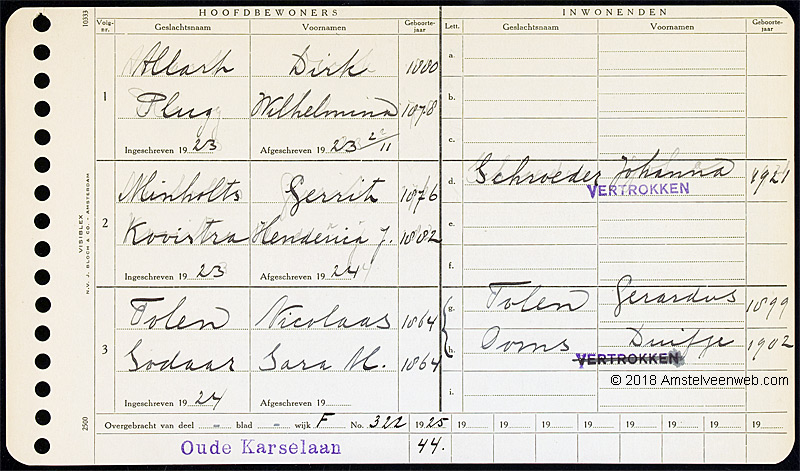 HOOFDBEWONERS
INWONENDEN
10333
Volg-nr.
Geslachtsnaam
Voornamen
Geboorte-jaar
Lett.
Geslachtsnaam
Voornamen
Geboorte-jaar
1
Allart Dirk 1880
Plug Wilhelmina 1878
Ingeschreven 19 23 Afgeschreven 19 23 22/11
a.
b.
c.
2
Minholts Gerrit 1876
Kooistra Henderica J. 1882
Ingeschreven 19 23 Afgeschreven 19 24
d. Schroeder Johanna 1921
VERTROKKEN
e.
f.
3
Tolen Nicolaas 1864
Sodaar Sara M. 1864
Ingeschreven 19 24 Afgeschreven 19
g. Tolen Gerardus 1899
h. Ooms Duifje 1902
VERTROKKEN
i.
© 2018 Amstelveenweb.com
VISIBLEX
N.V. J. BLOCH & CO. - AMSTERDAM
2500
Overgebracht van deel = blad = wijk F No. 322 1925 19 19 19 19 19 19 19 19
Oude Karselaan 44.